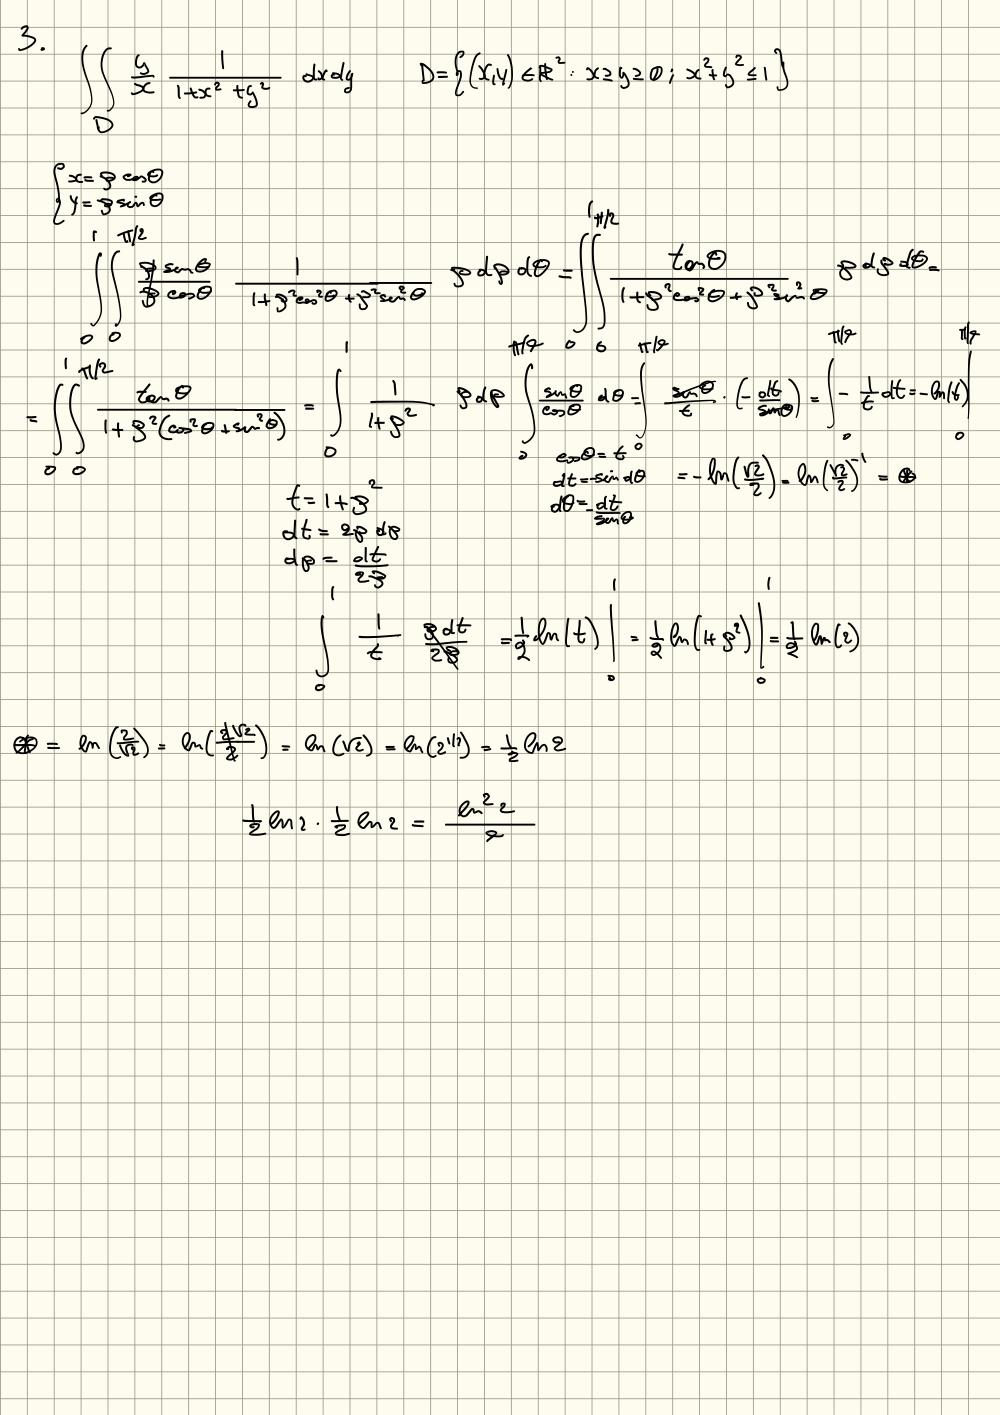 3.
∬_D y/x 1/(1+x²+y²) dxdy D={(x,y)∈ℝ²: x≥y≥0; x²+y²≤1}
{x=ρ cosθ
y=ρ sinθ
∫₀¹∫₀^{π/2} ρ senθ/ρ cosθ 1/(1+ρ²cos²θ+ρ²sen²θ) ρ dρ dθ = ∫₀¹∫₀^{π/2} tanθ/(1+ρ²cos²θ+ρ²sen²θ) ρ dρ dθ =
= ∫₀¹∫₀^{π/2} tanθ/(1+ρ²(cos²θ+sen²θ)) = ∫₀¹ 1/(1+ρ²) ρdρ ∫₀^{π/4} senθ/cosθ dθ = ∫₀^{π/4} senθ/t · (-dt/senθ) = ∫₀^{π/4} - 1/t dt = -ln(t) |₀^{π/4}
cosθ=t
dt=-sin dθ = -ln(√2/2) = ln(√2/2)⁻¹ = ⊛
dθ=-dt/senθ
t=1+ρ²
dt = 2ρ dρ
dρ = dt/2ρ
∫₀¹ 1/t ρ dt/2ρ = 1/2 ln(t) |₀¹ = 1/2 ln(1+ρ²) |₀¹ = 1/2 ln(2)
⊛ = ln(2/√2) = ln(2√2/2) = ln(√2) = ln(2^{1/2}) = 1/2 ln2
1/2 ln2 · 1/2 ln2 = ln²2/4